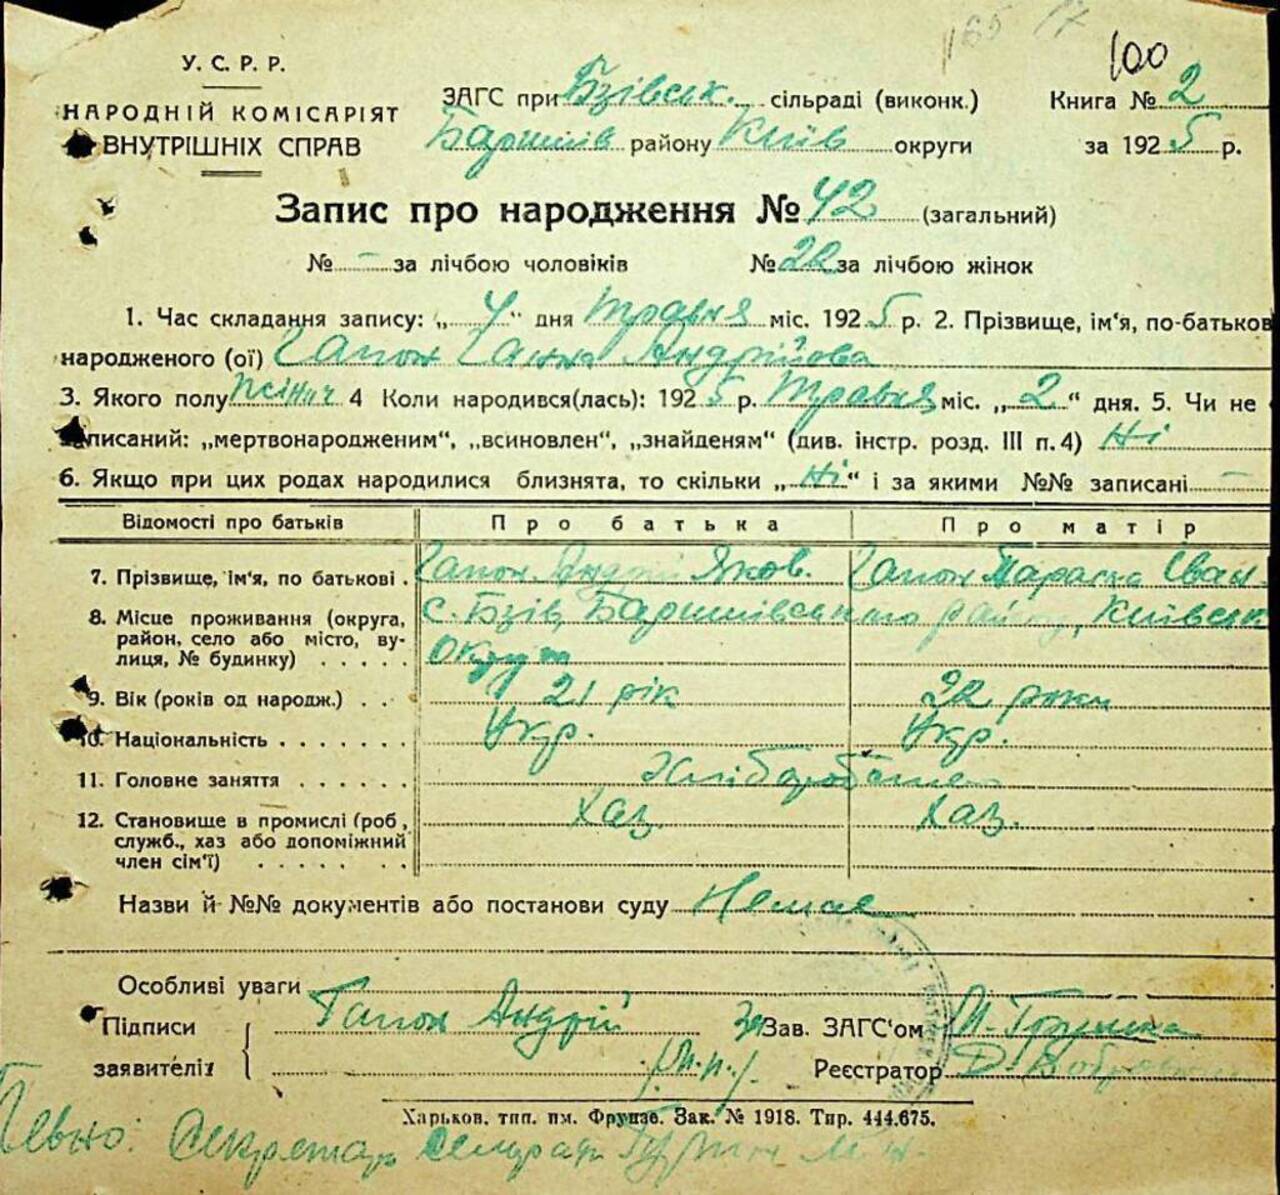 165 17
100
У. С. Р. Р.
НАРОДНІЙ КОМІСАРІЯТ
ВНУТРІШНІХ СПРАВ
ЗАГС при Бзівськ. сільраді (виконк.) Книга № 2
Баришів району Київ округи за 1925 р.
Запис про народження № 42 (загальний)
№ - за лічбою чоловіків № 22 за лічбою жінок
1. Час складання запису: „4" дня Травня міс. 1925 р. 2. Прізвище, ім'я, по-батьков
народженого (ої) Гапон Ганна Андрійова
3. Якого полу жіноч 4 Коли народився(лась): 1925 р. Травня міс. „2" дня. 5. Чи не
записаний: „мертвонародженим", „всиновлен", „знайденям" (див. інстр. розд. III п. 4) Ні
6. Якщо при цих родах народилися близнята, то скільки „Ні" і за якими №№ записані -
Відомості про батьків Про батька Про матір
7. Прізвище, ім'я, по батькові . Гапон Андрій Яков. Гапон Параска Іван-
8. Місце проживання (округа, район, село або місто, вулиця, № будинку) . . . . . с. Бзів, Баришівського району, Київськ
округи
9. Вік (років од народж.) . . . 21 рік 22 роки
10. Національність . . . . . . . Укр. Укр.
11. Головне заняття . . . . . . Хліборобство
12. Становище в промислі (роб, служб., хаз або допоміжний член сім'ї) . . . . . Хаз. Хаз.
Назви й №№ документів або постанови суду Немає
Особливі уваги
Підписи Гапон Андрій За Зав. ЗАГС'ом
заявителів /М.п./ Реєстратор Д.
Харьков, тип. им. Фрунзе. Зак. № 1918. Тир. 444.675.
Певно: Секретар сільради